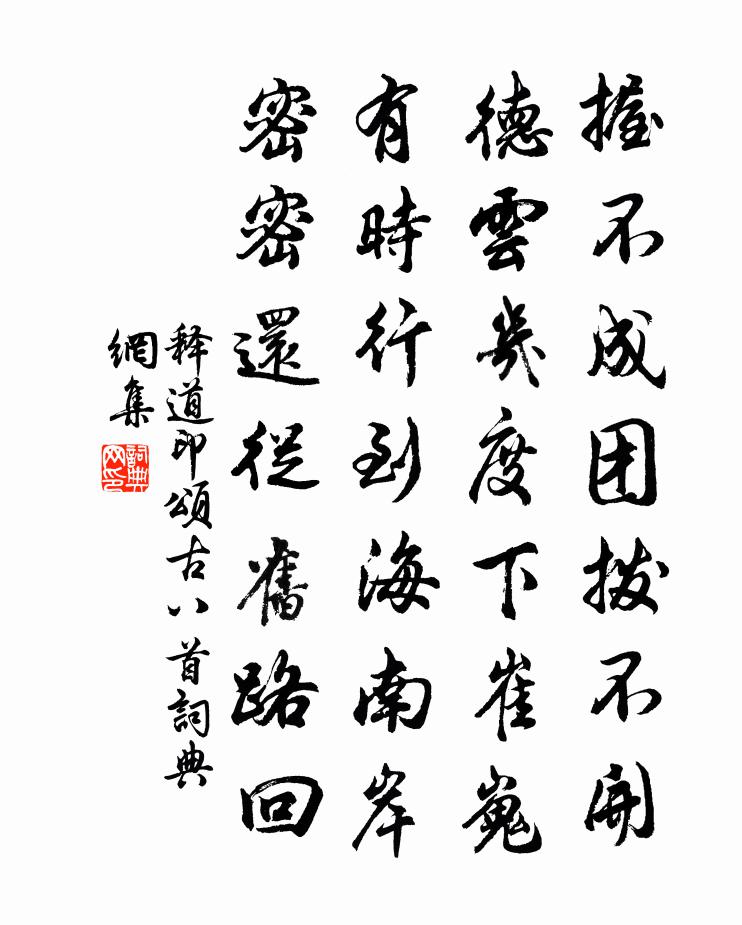 握不成团拨不開
德雲幾度下崔嵬
有時行到海南岸
密密還從舊路回
释道印頌古八首詞典
網集
詞典
网印